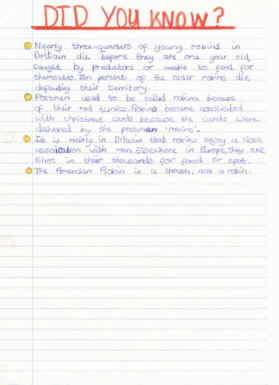 DID YOU KNOW?
Nearly three-quarters of young robins in
Britain die before they are one year old,
caught by predators or unable to fend for
themselves. Ten percent of the older robins die,
defending their territory.
Postmen used to be called robins because
of their red tunics. Robins became associated
with christmas cards because the cards were
delivered by the postmen 'robins'.
It is mainly in Britain that robins enjoy a close
association with man. Elsewhere in Europe, they are
shot in their thousands for food or sport.
The American Robin is a thrush, not a robin.